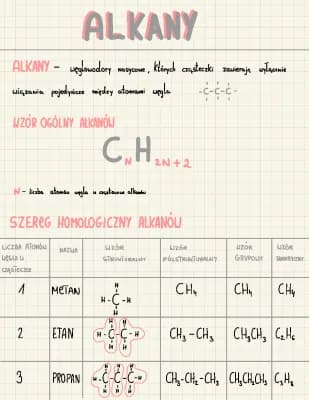 ALKANY
ALKANY – węglowodory nasycone, których cząsteczki zawierają wyłącznie
wiązania pojedyncze między atomami węgla -C-C-C-
WZÓR OGÓLNY ALKANÓW
CNH2N+2
N - liczba atomów węgla w cząsteczce alkanu
SZEREG HOMOLOGICZNY ALKANÓW
LICZBA ATOMÓW WĘGLA W CZĄSTECZCE NAZWA WZÓR STRUKTURALNY WZÓR PÓŁSTRUKTURALNY WZÓR GRUPOWY WZÓR SUMARYCZNY
1 METAN H H-C-H H CH4 CH4 CH4
2 ETAN H H H-C-C-H H H CH3-CH3 CH3CH3 C2H6
3 PROPAN H H H H-C-C-C-H H H H CH3-CH2-CH3 CH3CH2CH3 C3H8